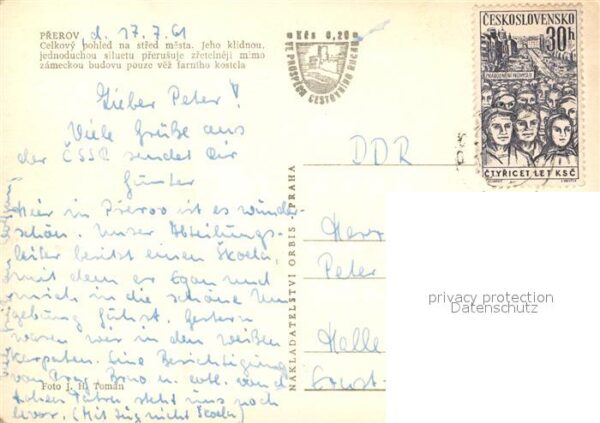 PŘEROV , d. 17.7.61
Celkový pohled na střed města. Jeho klidnou,
jednoduchou siluetu přerušuje zřetelněji mimo
zámeckou budovu pouze věž farního kostela
Lieber Peter!
Viele Grüße aus
der ČSSR sendet Dir
Günter
Hier in Přerov ist es wunder-
schön. Unser Abteilungs-
leiter besitzt einen Škoda,
mit dem er Egon und
mich in die schöne Um
gebung führt. Gestern
waren wir in den weißen
Karpaten. Eine Besichtigung
von Prag, Brno u. evtl. von d.
hohen Tatra steht uns noch
bevor. (Mit Zug nicht Škoda)
Foto J. H. Toman
NAKLADATELSTVÍ ORBIS - PRAHA
Kčs 0,20
VE PROSPĚCH CESTOVNÍHO RUCHU
ČESKOSLOVENSKO
30h
ČTYŘICET LET KSČ
DDR
Herr
Peter
Halle
Ernst-
privacy protection
Datenschutz